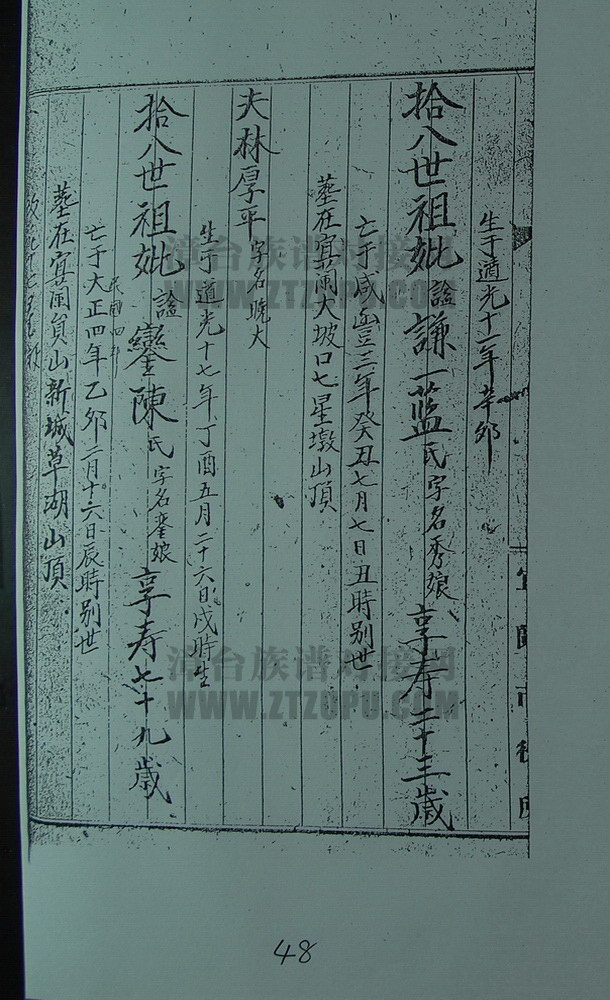 生于道光十一年辛卯
拾八世祖妣謚謙一藍氏字名秀娘享寿二十三歲
亡于咸豊三年癸丑七月七日丑時别世
墓在宜蘭大坡口七星墩山頂
夫林厚平字名晚大
生于道光十七年丁酉五月二十六日戌時生
拾八世祖妣謚鑾陳氏字名鑾娘享寿七十九歲
民國四年
亡于大正四年乙卯二月十六日辰時别世
墓在宜蘭員山新城草湖山頂
漳台族谱对接网
WWW.ZTZUPU.COM
漳台族谱对接网
WWW.ZTZUPU.COM
48